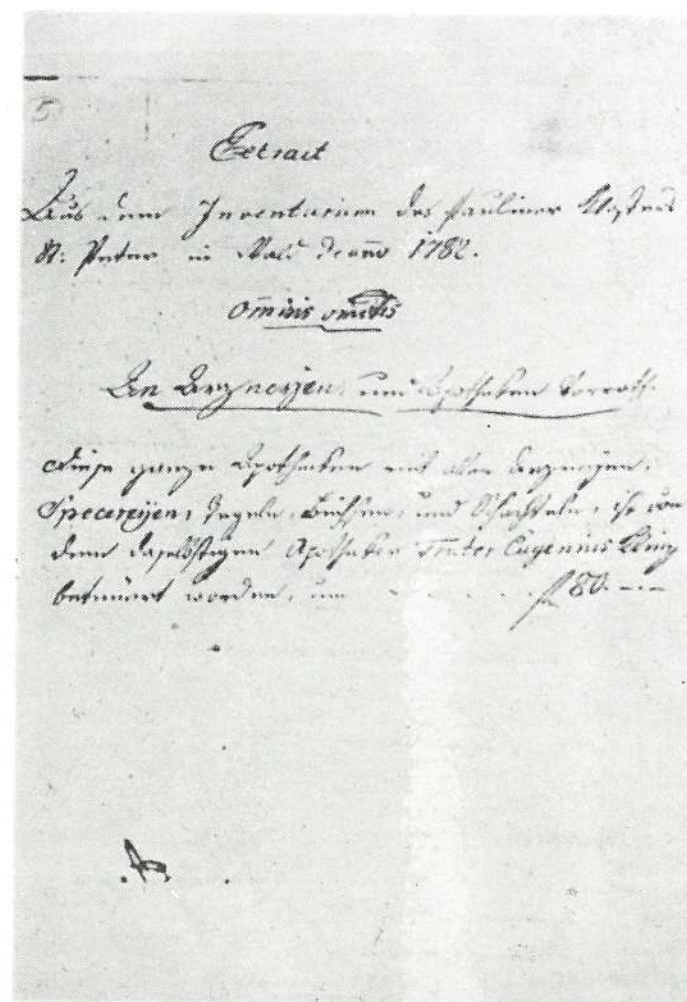 5
Extract
Aus dem Inventarium des Pauliner Klosters
St: Peter in Wald de anno 1782.
Om̅issis omittendis
An Arzneyen und Apotheken Vorrath.
Diese ganze Apotheken mit allen Arzneyen,
Specereyen, Tegeln, Büchsen, und Schachteln, ist von
dem daselbstigen Apotheker Frater Eugenius
worden, um f 80.---